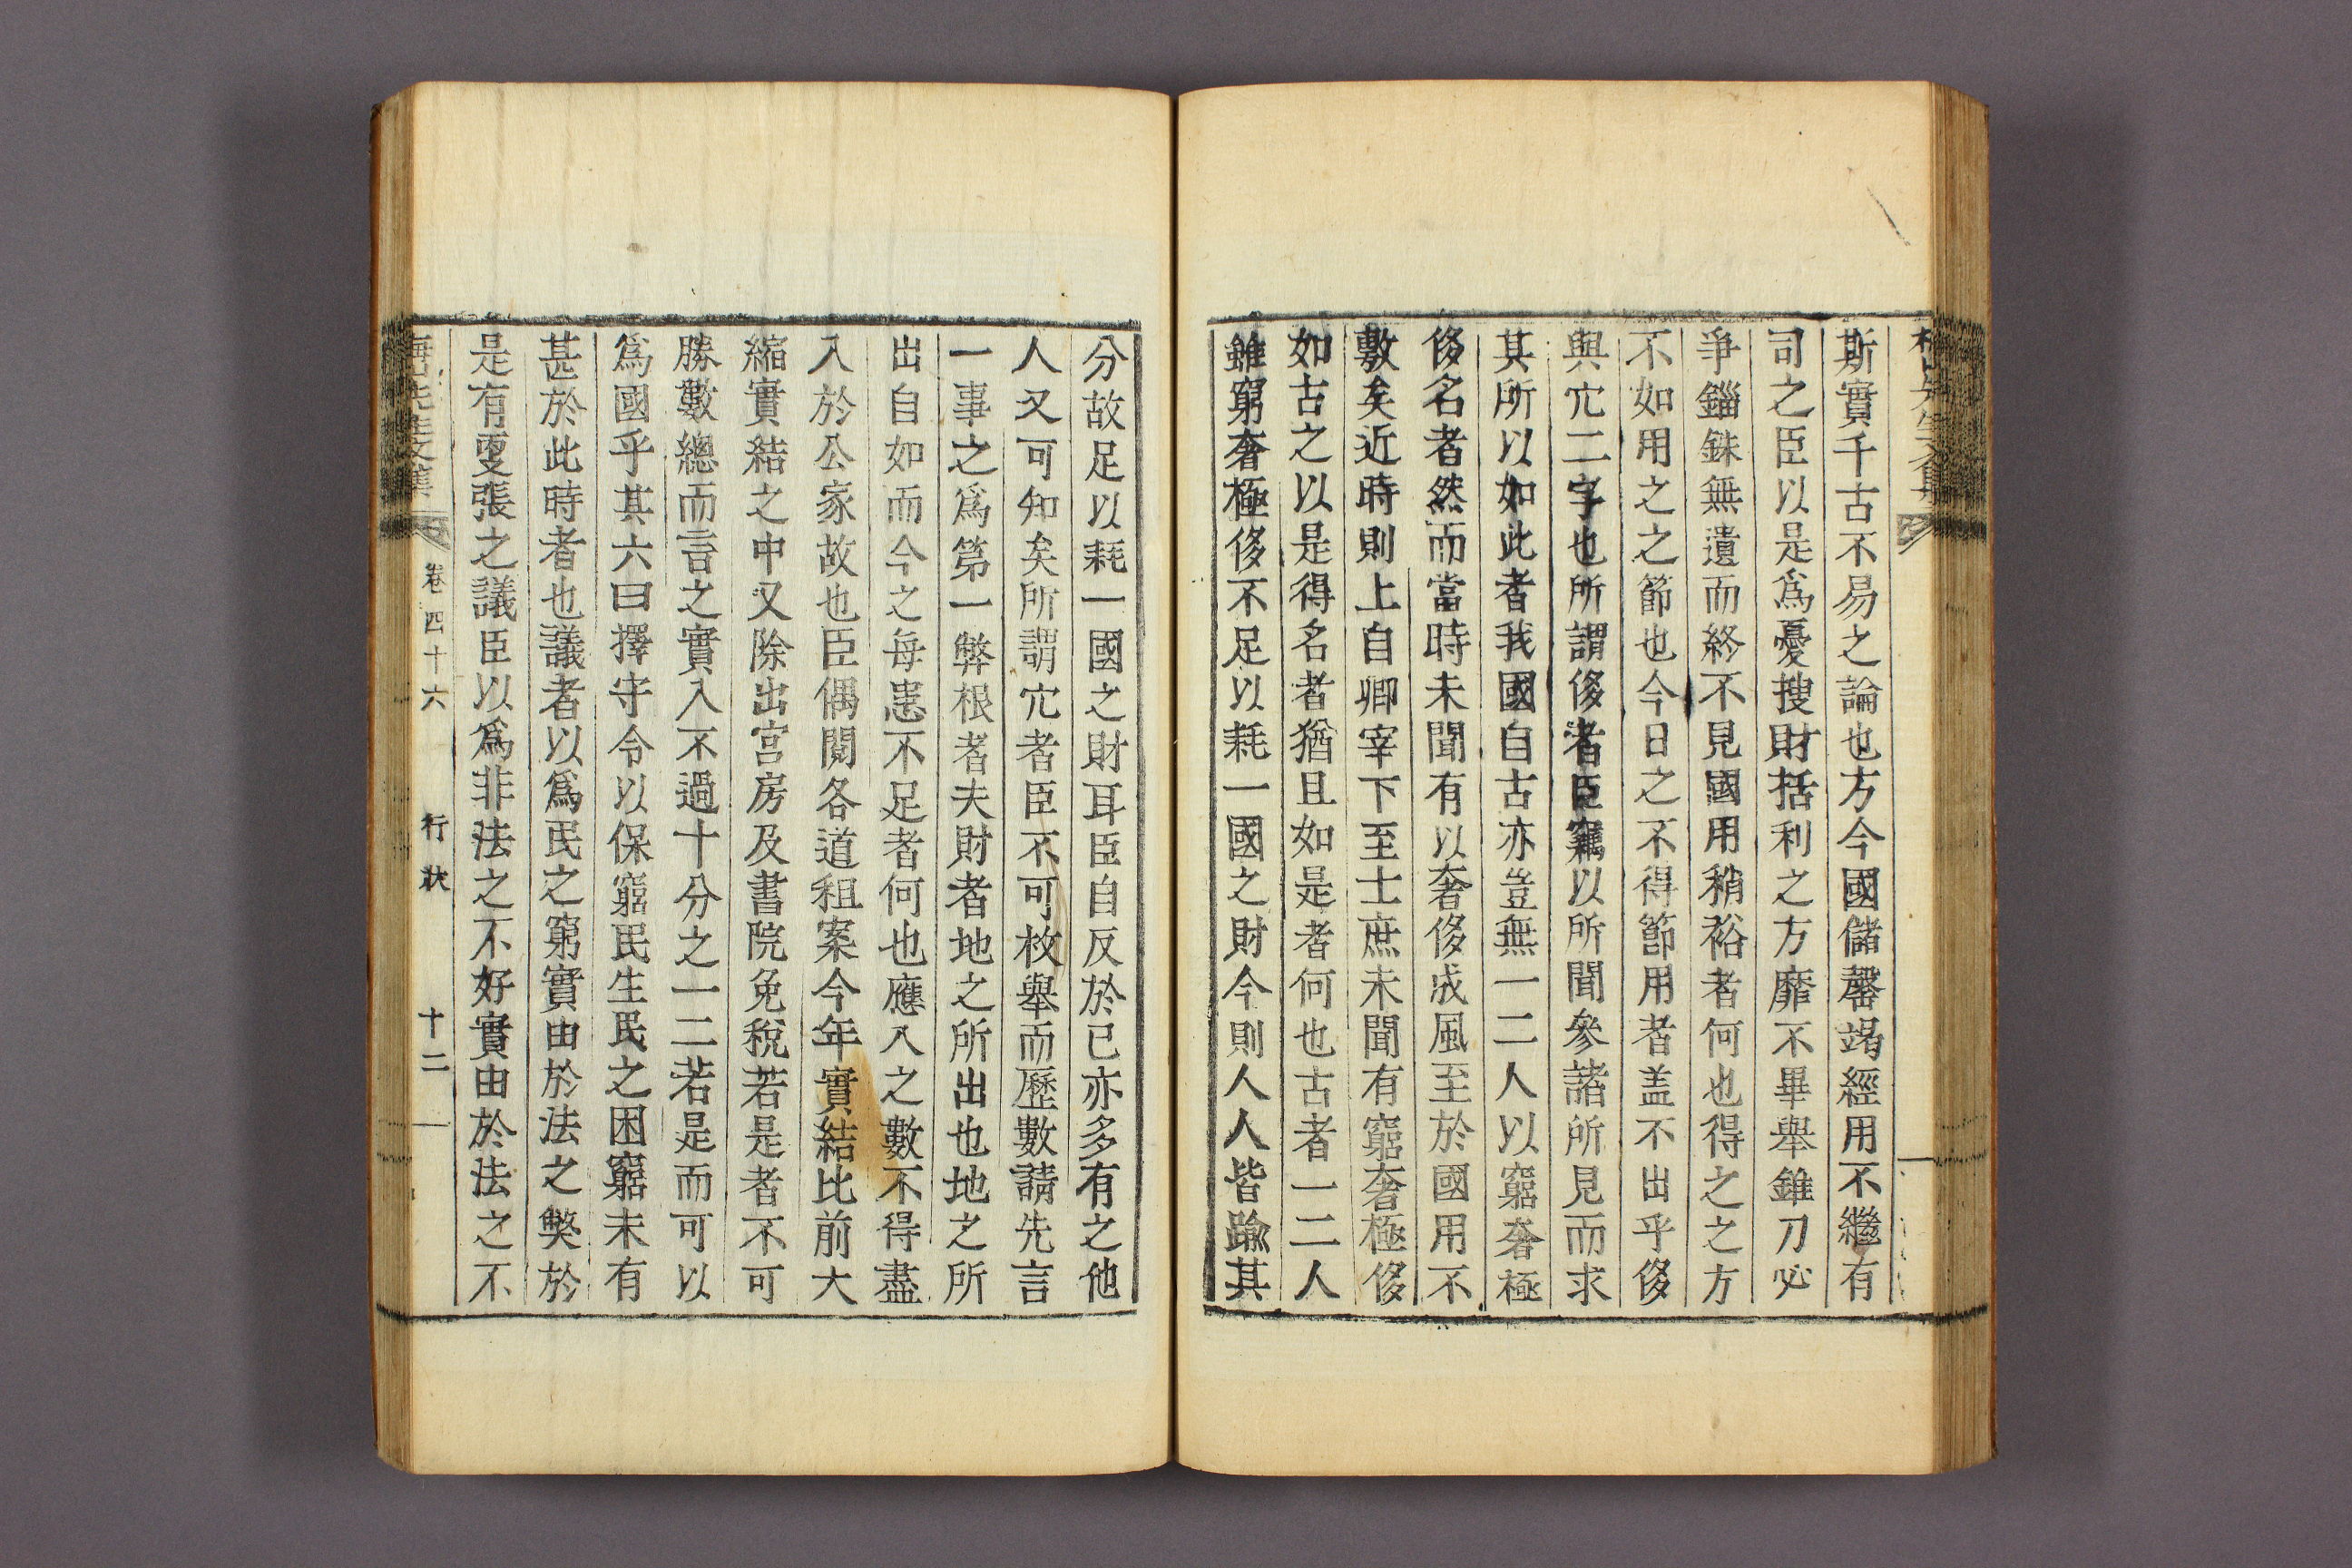 斯實千古不易之論也方今國儲罄竭經用不繼有
司之臣以是爲憂搜財括利之方靡不畢舉錐刀必
爭錙銖無遺而終不見國用稍裕者何也得之之方
不如用之之節也今日之不得節用者盖不出乎侈
與冗二字也所謂侈者臣竊以所聞參諸所見而求
其所以如此者我國自古亦豈無一二人以窮奢極
侈名者然而當時未聞有以奢侈成風至於國用不
敷矣近時則上自卿宰下至士庶未聞有窮奢極侈
如古之以是得名者猶且如是者何也古者一二人
雖窮奢極侈不足以耗一國之財今則人人皆踰其
分故足以耗一國之財耳臣自反於己亦多有之他
人又可知矣所謂冗者臣不可枚舉而歷數請先言
一事之爲第一弊根者夫財者地之所出也地之所
出自如而今之每患不足者何也應入之數不得盡
入於公家故也臣偶閱各道租案今年實結比前大
縮實結之中又除出宮房及書院免稅若是者不可
勝數總而言之實入不過十分之一二若是而可以
爲國乎其六曰擇守令以保窮民生民之困窮未有
甚於此時者也議者以爲民之窮實由於法之獘於
是有更張之議臣以爲非法之不好實由於法之不
卷四十六　行狀　十二